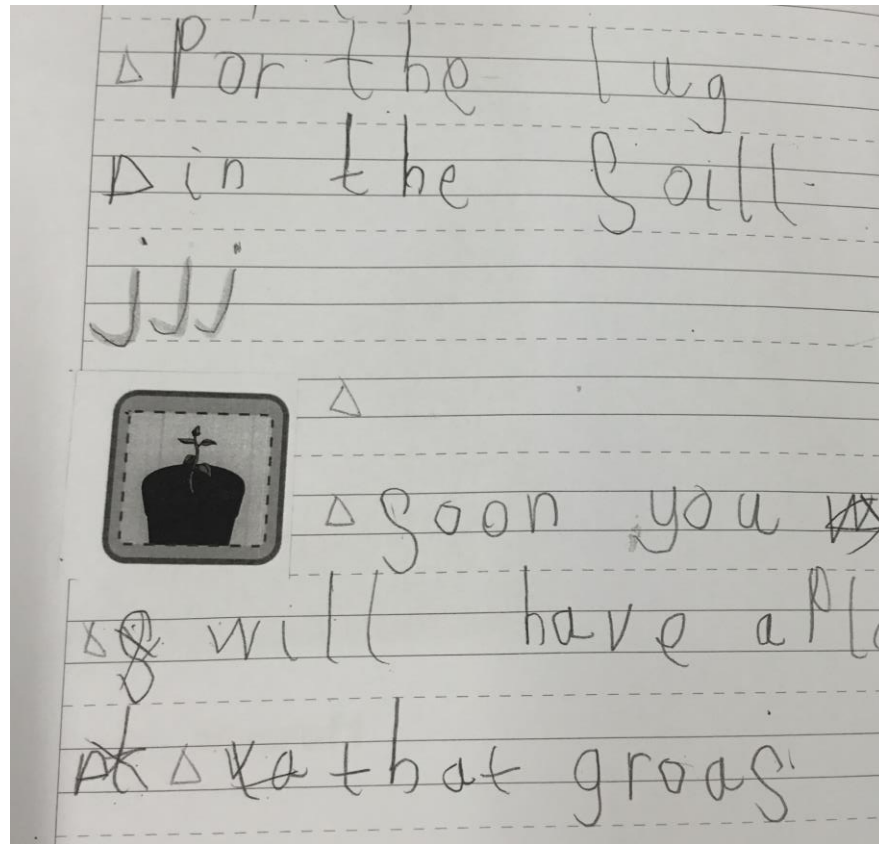 Por the lug
in the Soill
jjj
Soon you
will have a
that groas